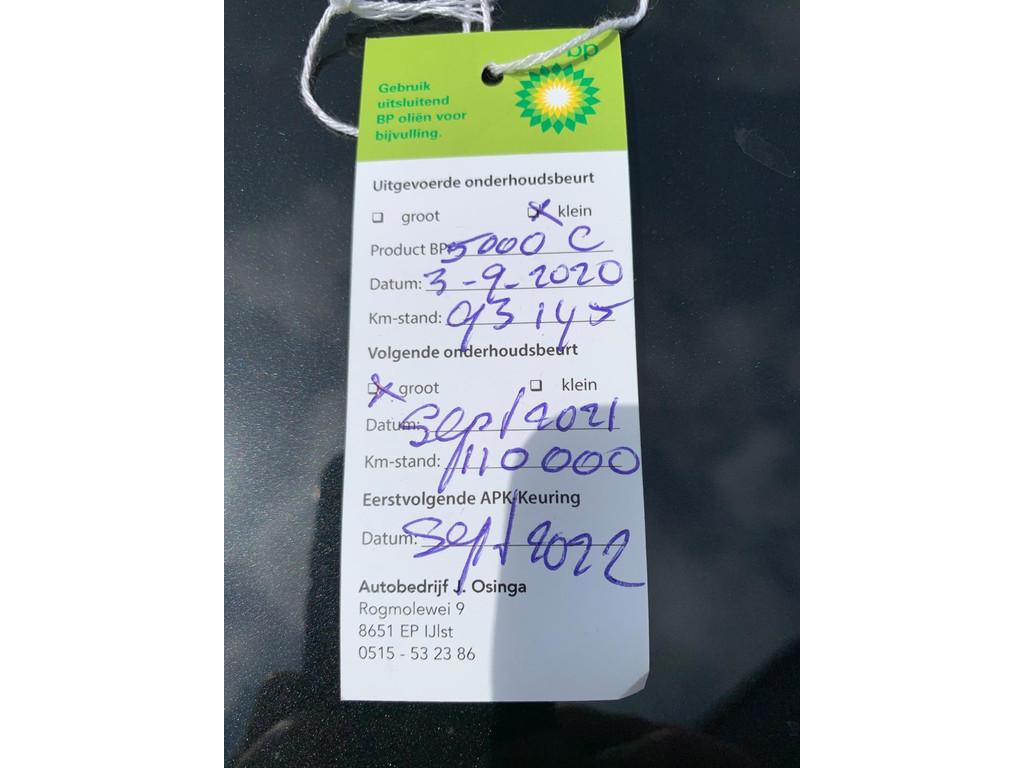 bp
Gebruik
uitsluitend
BP oliën voor
bijvulling.
Uitgevoerde onderhoudsbeurt
groot klein
Product BP 5000 C
Datum: 3-9-2020
Km-stand: 93145
Volgende onderhoudsbeurt
groot klein
Datum: Sept/2021
Km-stand: 110000
Eerstvolgende APK-Keuring
Datum: Sept/2022
Autobedrijf J. Osinga
Rogmolewei 9
8651 EP IJlst
0515 - 53 23 86